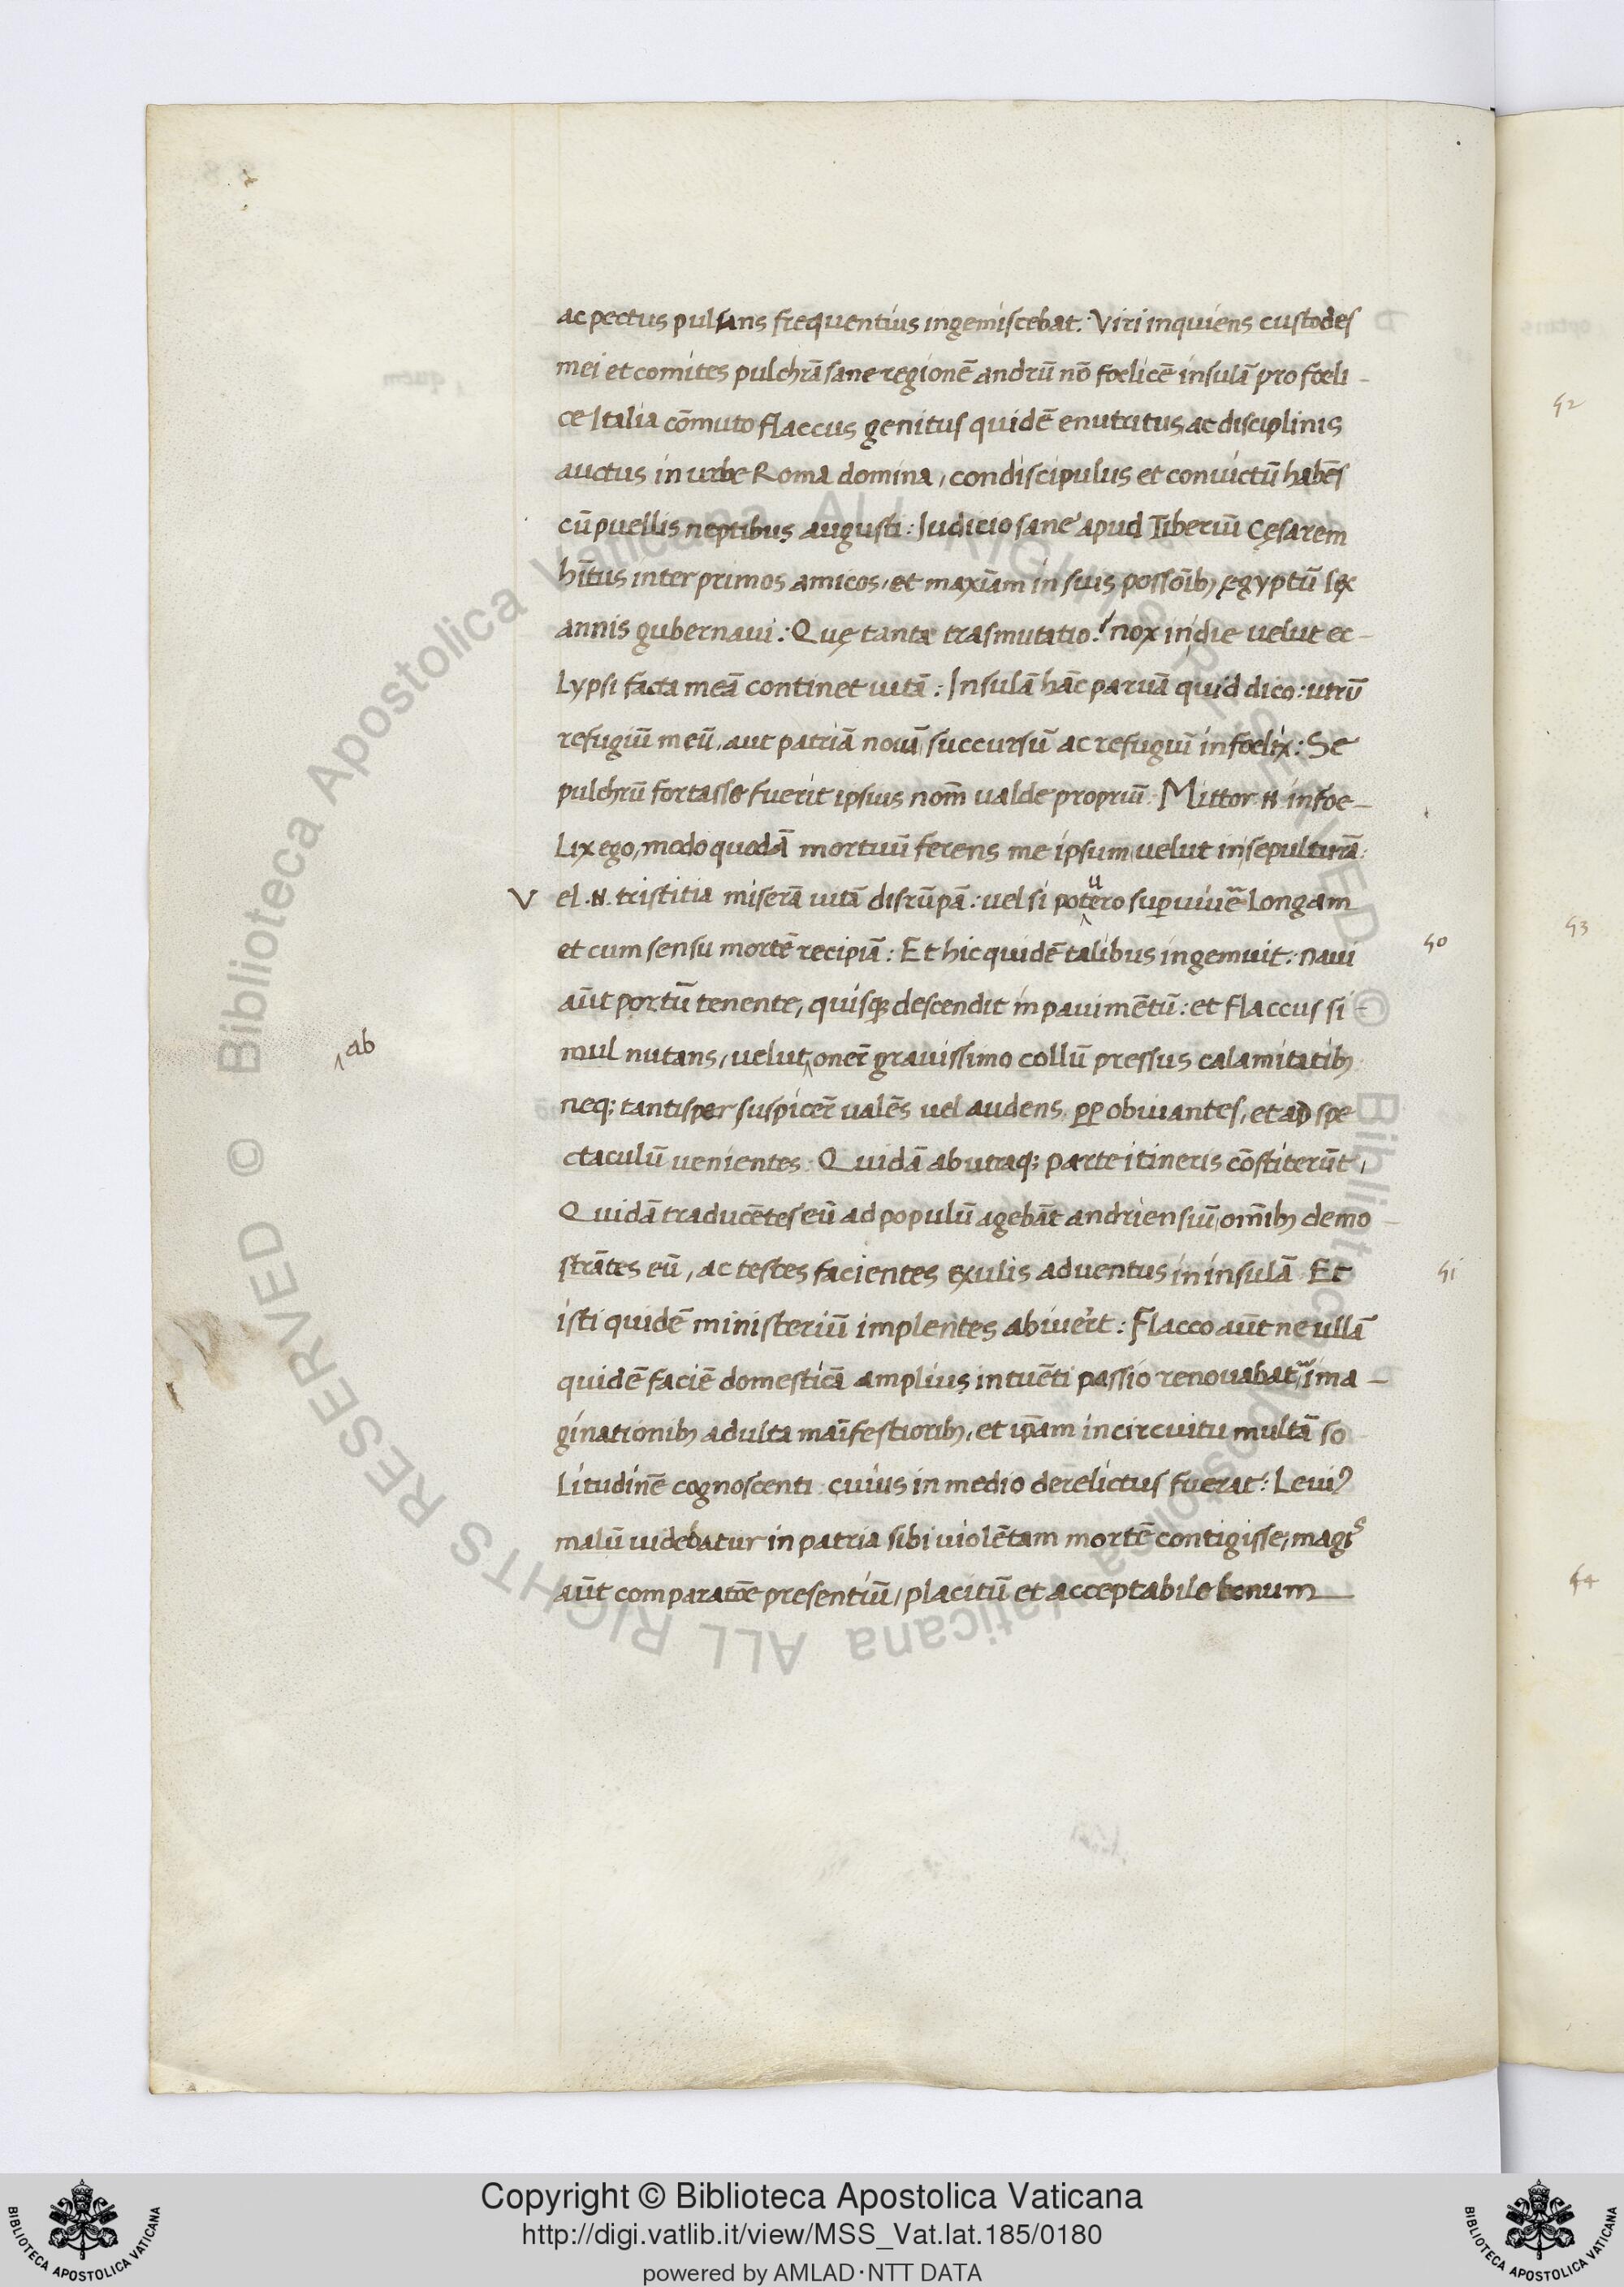 ac pectus pulsans frequentius ingemiscebat. Viri inquiens custodes
mei et comites pulchrā sane regionē andrū nō foelicē insulā pro foeli-
ce Italia cōmuto flaccus genitus quidē enutritus ac disciplinis
auctus in urbe Roma domina, condiscipulus et convictū habēs
cū puellis neptibus augusti: Iudicio sane apud Tiberiū Cęsarem
hītus inter primos amicos, et maxīam in suis possoīb; ęgyptū sex
annis gubernavi: Quę tanta trasmutatio? nox in die velut ec-
Lypsi facta meā continet uitā: Insulā hāc paruā quid dico: utrū
refugiū meū, aut patriā nouā, succursū ac refugiū infoelix: Se
pulchrū fortasse fuerit ipsius nom̄ ualde propriū. Mittor .N. infoe-
Lix ego, modo quodā mortuū ferens me ipsum velut in sepulturā:
Vel .N. tristitia miserā uitā disrūpā: vel si potuero supvivē Longam
et cum sensu mortē recipiā: Et hic quidē talibus ingemuit: navi
40
aūt portū tenente, quisq; descendit in pavimētū: et flaccus si-
mul nutans, velut oner̄ gravissimo collū pressus calamitatib;
ab
neq; tantisper suspicer̄ valēs vel audens pp obviantes, et ad spe
ctaculū venientes. Quidā ab utraq; parte itineris cōstiterūt,
Quidā traducētes eū ad populū agebāt andriensiū, omīb; demo-
strātes eū, ac testes facientes exulis adventus in insulā Et
41
isti quidē ministeriū implentes abivert: Flacco aūt ne ullā
quidē faciē domesticā amplius intuēti passio renovabat, ima-
ginationib; adulta maīfestiorib;, et ipam in circuitu multā so
Litudinē cognoscenti cuius in medio derelictus fuerat: Levi9
malū videbatur in patria sibi violētam mortē contigisse, magis
aūt comparatōe presentiū, placitū et acceptabile bonum
42
43
44
Copyright © Biblioteca Apostolica Vaticana
http://digi.vatlib.it/view/MSS_Vat.lat.185/0180
powered by AMLAD·NTT DATA
BIBLIOTECA APOSTOLICA VATICANA
BIBLIOTECA APOSTOLICA VATICANA
© Biblioteca Apostolica Vaticana ALL RIGHTS RESERVED
© Biblioteca Apostolica Vaticana ALL RIGHTS RESERVED